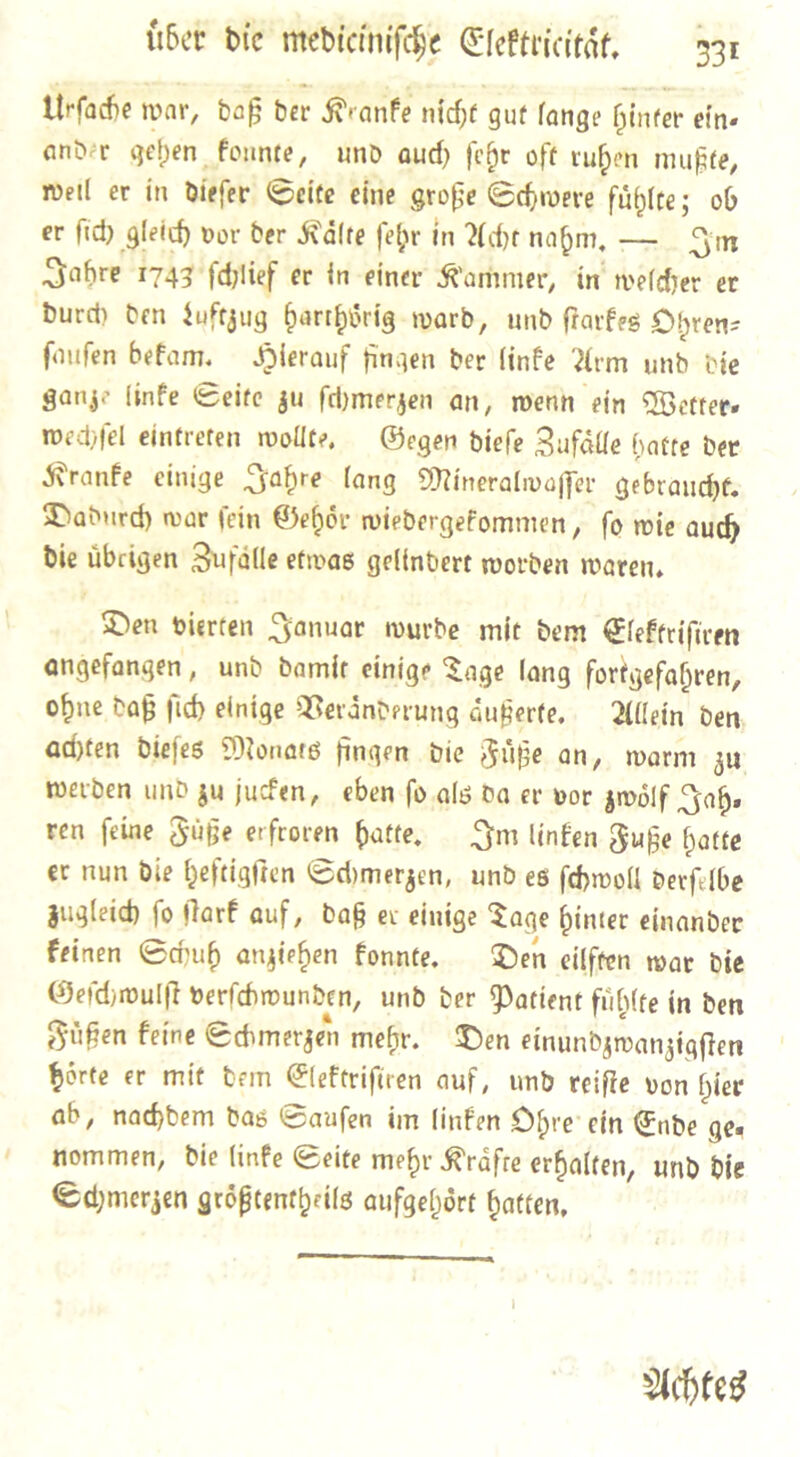 über die medicinische Elektricität. 331
Ursache war, daß der Kranke nicht gut lange hinter ein-
ander gehen konnte, und auch sehr oft ruhen mußte,
weil er in dieser Seite eine große Schwere fühlte; ob
er sich gleich vor der Kälte sehr in Acht nahm. — Im
Jahre 1743 schlief er in einer Kammer, in welcher er
durch den Luftzug harthörig ward, und starkes Ohren-
sausen bekam. Hierauf fingen der linke Arm und die
ganze linke Seite zu schmerzen an, wenn ein Wetter-
wechsel eintreten wollte. Gegen diese Zufälle hatte der
Kranke einige Jahre lang Mineralwasser gebraucht.
Dadurch war sein Gehör wiedergekommen, so wie auch
die übrigen Zufälle etwas gelindert worden waren.
Den vierten Januar wurde mit dem Elektrisiren
angefangen, und damit einige Tage lang fortgefahren,
ohne daß sich einige Veränderung äußerte. Allein den
achten dieses Monats fingen die Füße an, warm zu
werden und zu jucken, eben so als da er vor zwölf Jah-
ren seine Füße erfroren hatte. Im linken Fuße hatte
er nun die heftigsten Schmerzen, und es schwoll derselbe
zugleich so stark auf, daß er einige Tage hinter einander
keinen Schuh anziehen konnte. Den eilften war die
Geschwulst verschwunden, und der Patient fühlte in den
Füßen keine Schmerzen mehr. Den einundzwanzigsten
hörte er mit dem Elektrisiren auf, und reiste von hier
ab, nachdem das Sausen im linken Ohre ein Ende ge-
nommen, die linke Seite mehr Kräfte erhalten, und die
Schmerzen größtentheils aufgehört hatten.
Achtes